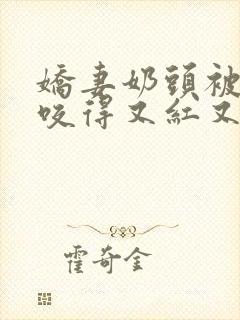 嬌妻奶頭被
咬得又紅又
霍奇金